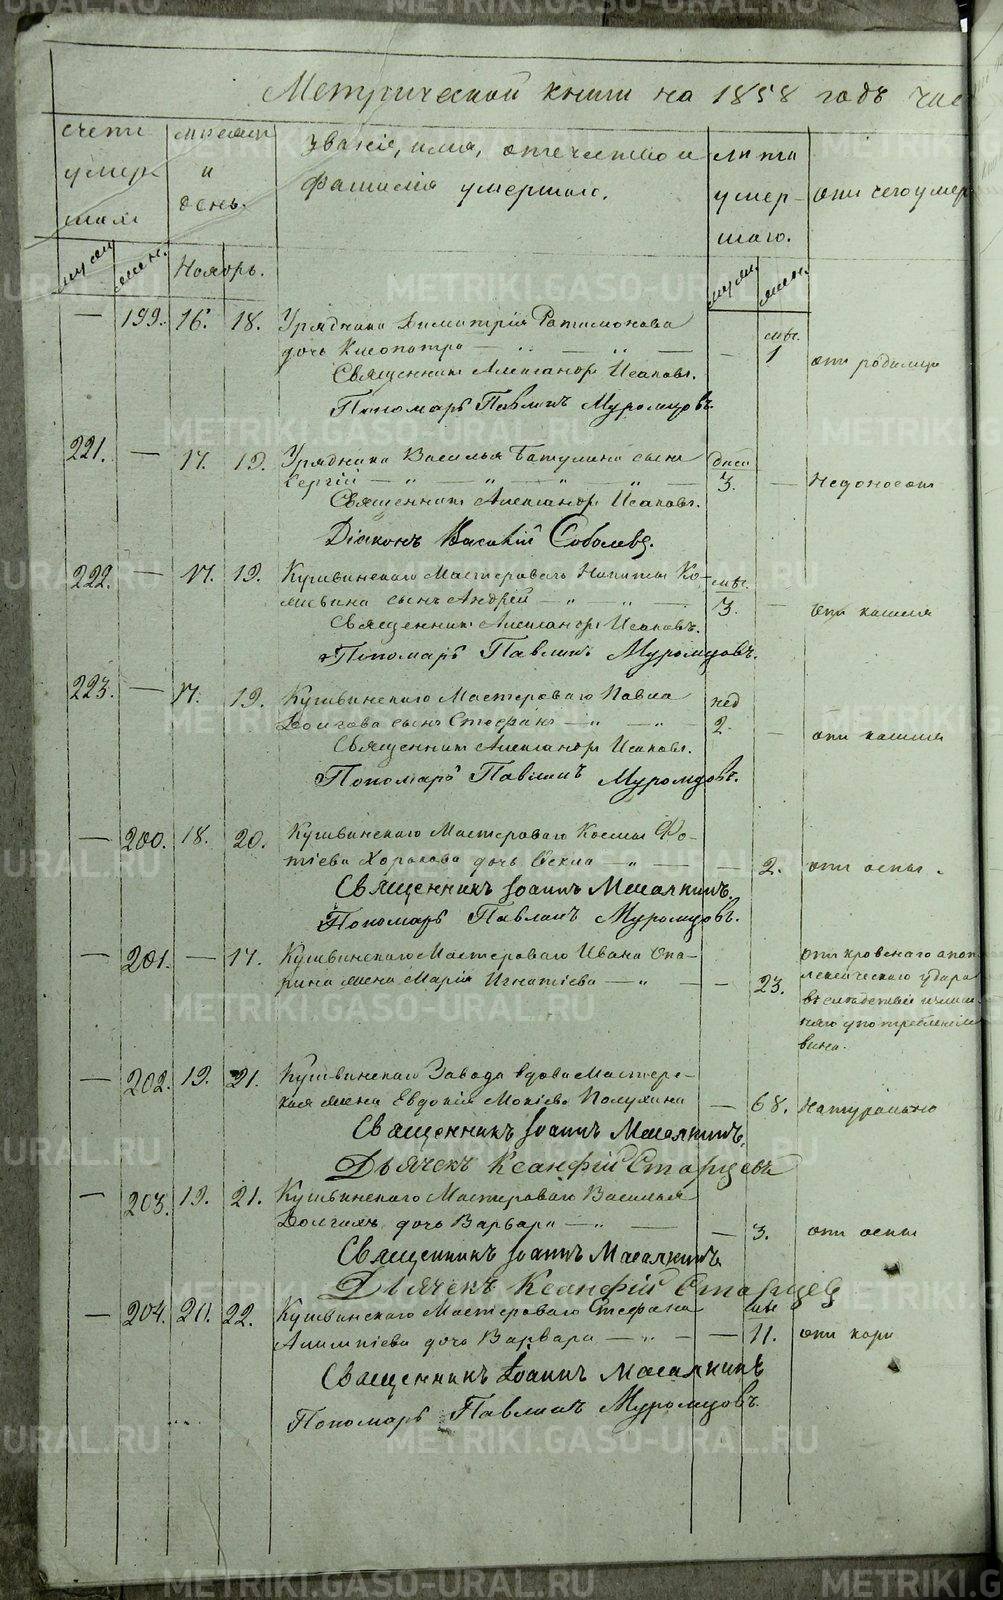 Метрической книги на 1858 годъ час
счетъ умер шихъ
муж. жен.
месяцъ и день.
Ноябрь.
Званіе, имя, отечество и
фамилія умершаго.
лѣта умер- шаго.
муж. жен.
отъ чего умер
— 199. 16. 18. Урядника Димитрія Ратимонова мѣс.
дочь Клеопатра — „ — „ — — 1 отъ родимца
Священникъ Александръ Исаковъ.
Пономарь Павлинъ Муромцовъ.
221. — 17. 19. Урядника Василья Батулина сынъ дней
Сергій — „ — „ — „ — 3. — Недоносокъ
Священникъ Александръ Исаковъ.
Діаконъ Василій Соболевъ.
222. — 17. 19. Кушвинскаго Мастероваго Никиты Ко- мѣс.
сынъ Андрей — „ — „ — 3. — отъ кашля
Священникъ Александръ Исаковъ.
Пономарь Павлинъ Муромцовъ.
223. — 17. 19. Кушвинскаго Мастероваго Павла нед
Долгова сынъ Стефанъ — „ — „ — 2. — отъ кашля
Священникъ Александръ Исаковъ.
Пономарь Павлинъ Муромцовъ.
— 200. 18. 20. Кушвинскаго Мастероваго Космы Фо-
тіева дочь Ѳекла — „ — — 2. отъ оспы.
Священникъ Іоаннъ Масалкинъ.
Пономарь Павлинъ Муромцовъ.
— 201. — 17. Кушвинскаго Мастероваго Ивана Опа- отъ кровенаго апоп
рина жена Марія Игнатіева — „ — — 23. лексическаго удара
въ слѣдствіи излиш-
няго употребленія
вина.
— 202. 19. 21. Кушвинскаго Завода вдова Мастерс-
кая жена Евдокія Мокіева Полухина — 68. Натурально
Священникъ Іоаннъ Масалкинъ.
Дьячекъ Ксанфій Старцевъ
— 203. 19. 21. Кушвинскаго Мастероваго Василья
Долгихъ дочь Варвара — „ — — 3. отъ оспы
Священникъ Іоаннъ Масалкинъ
Дьячекъ Ксанфій Старцевъ
— 204. 20. 22. Кушвинскаго Мастероваго Стефана мѣс
Алимпіева дочь Варвара — „ — — 11. отъ кори
Священникъ Іоаннъ Масалкинъ
Пономарь Павлинъ Муромцовъ.
METRIKI.GASO-URAL.RU